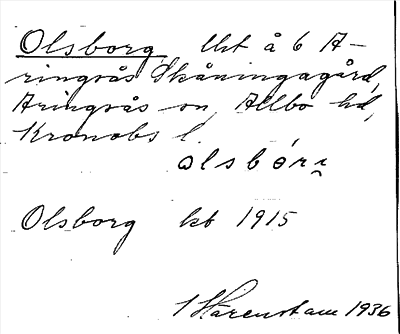 Olsborg, lht å 6 A-
ringsås Skåningagård,
Aringsås sn, Allbo hd,
Kronobs l.
olsbór
Olsborg kb 1915
I Härenstam 1936